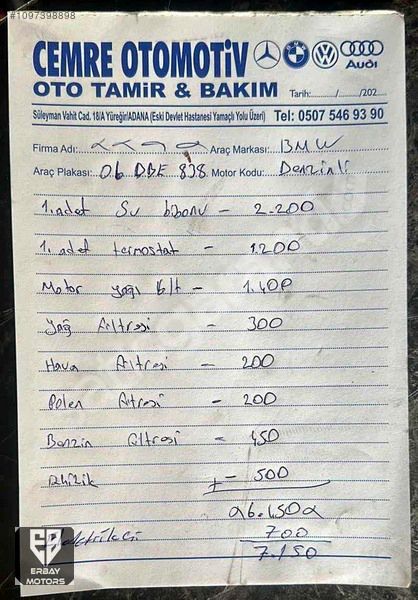 #1097398898
CEMRE OTOMOTİV
Audi
OTO TAMİR & BAKIM Tarih:....../....../202....
Süleyman Vahit Cad. 18/A Yüreğir/ADANA (Eski Devlet Hastanesi Yamaçlı Yolu Üzeri) Tel: 0507 546 93 90
Firma Adı: Araç Markası: BMW
Araç Plakası: 06 DBE 838 Motor Kodu: Benzinli
1.adet Su bibonu - 2.200
1.adet termostat - 1.200
Motor yağı 6/lt - 1.400
Yağ filtresi - 300
Hava filtresi - 200
Polen filtresi - 200
Benzin filtresi = 450
- 500
+
6.450
Elektrikçi 700
7.150
EB
ERBAY
MOTORS